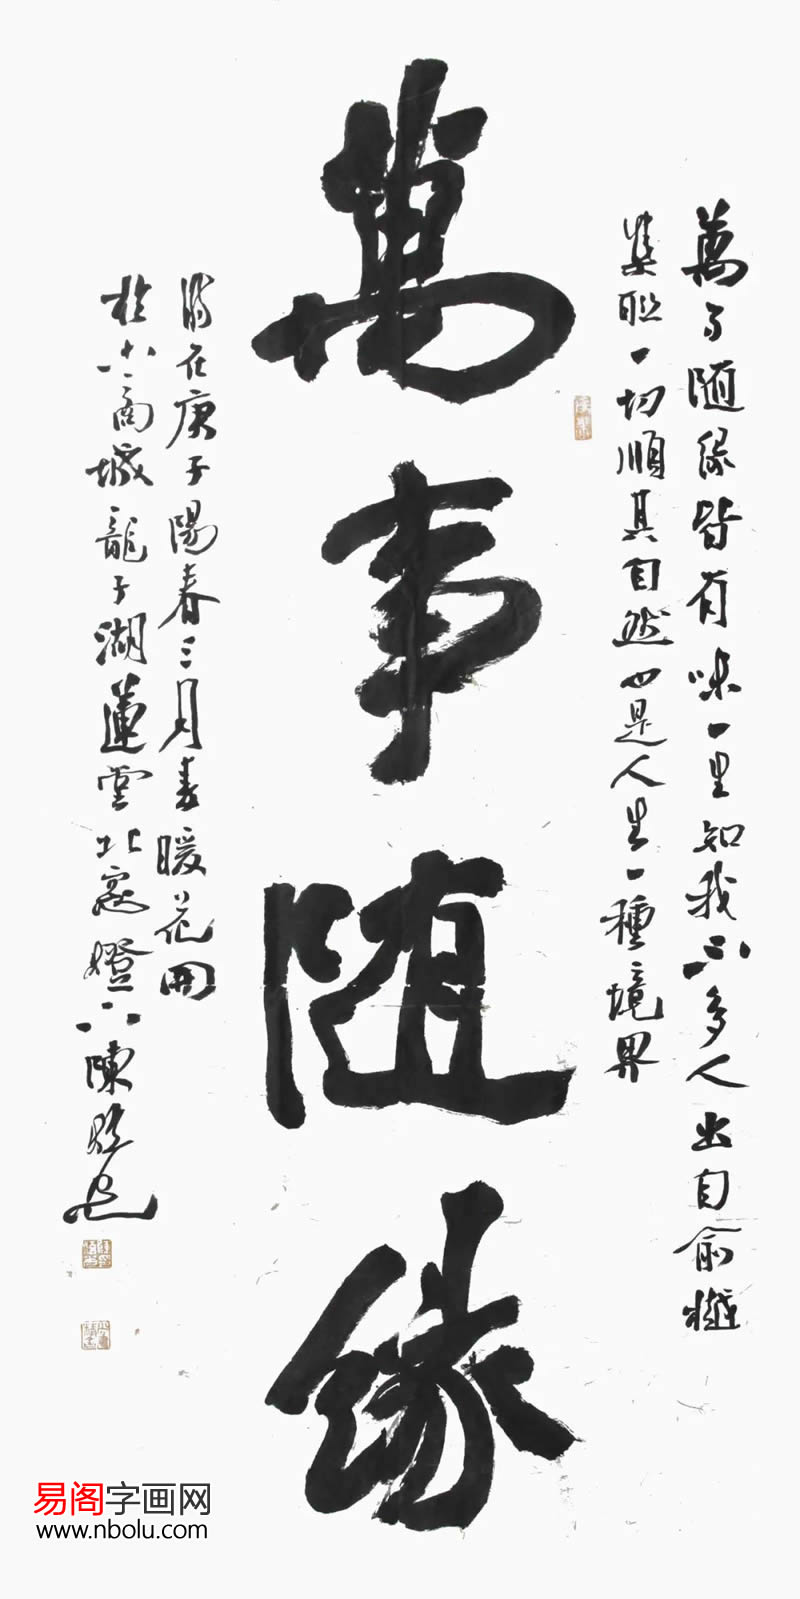 萬事随缘
萬事随缘皆有味一里知我不多人出自俞樾
集联一切順其自然也是人生一種境界
时在庚子陽春三月春暖花開
於小商城龍子湖蓮堂北窓燈下陳
易阁字画网
www.nbolu.com